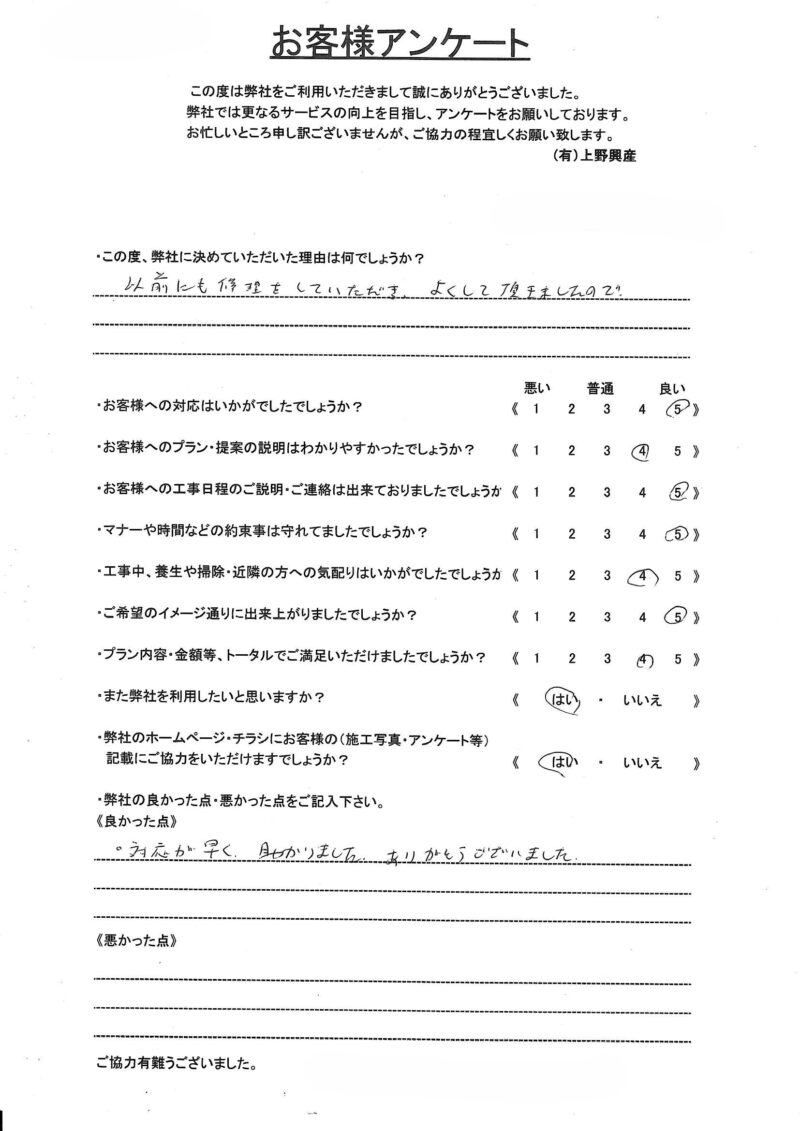 お客様アンケート
この度は弊社をご利用いただきまして誠にありがとうございました。
弊社では更なるサービスの向上を目指し、アンケートをお願いしております。
お忙しいところ申し訳ございませんが、ご協力の程宜しくお願い致します。
(有)上野興産
・この度、弊社に決めていただいた理由は何でしょうか？
以前にも修理をしていただき、よくして頂きましたので。
悪い 普通 良い
・お客様への対応はいかがでしたでしょうか？ 《 1 2 3 4 5 》
・お客様へのプラン・提案の説明はわかりやすかったでしょうか？ 《 1 2 3 4 5 》
・お客様への工事日程のご説明・ご連絡は出来ておりましたでしょうか 《 1 2 3 4 5 》
・マナーや時間などの約束事は守れてましたでしょうか？ 《 1 2 3 4 5 》
・工事中、養生や掃除・近隣の方への気配りはいかがでしたでしょうか 《 1 2 3 4 5 》
・ご希望のイメージ通りに出来上がりましたでしょうか？ 《 1 2 3 4 5 》
・プラン内容・金額等、トータルでご満足いただけましたでしょうか？ 《 1 2 3 4 5 》
・また弊社を利用したいと思いますか？ 《 はい ・ いいえ 》
・弊社のホームページ・チラシにお客様の（施工写真・アンケート等）
記載にご協力をいただけますでしょうか？ 《 はい ・ いいえ 》
・弊社の良かった点・悪かった点をご記入下さい。
《良かった点》
。対応が早く、助かりました。ありがとうございました。
《悪かった点》
ご協力有難うございました。